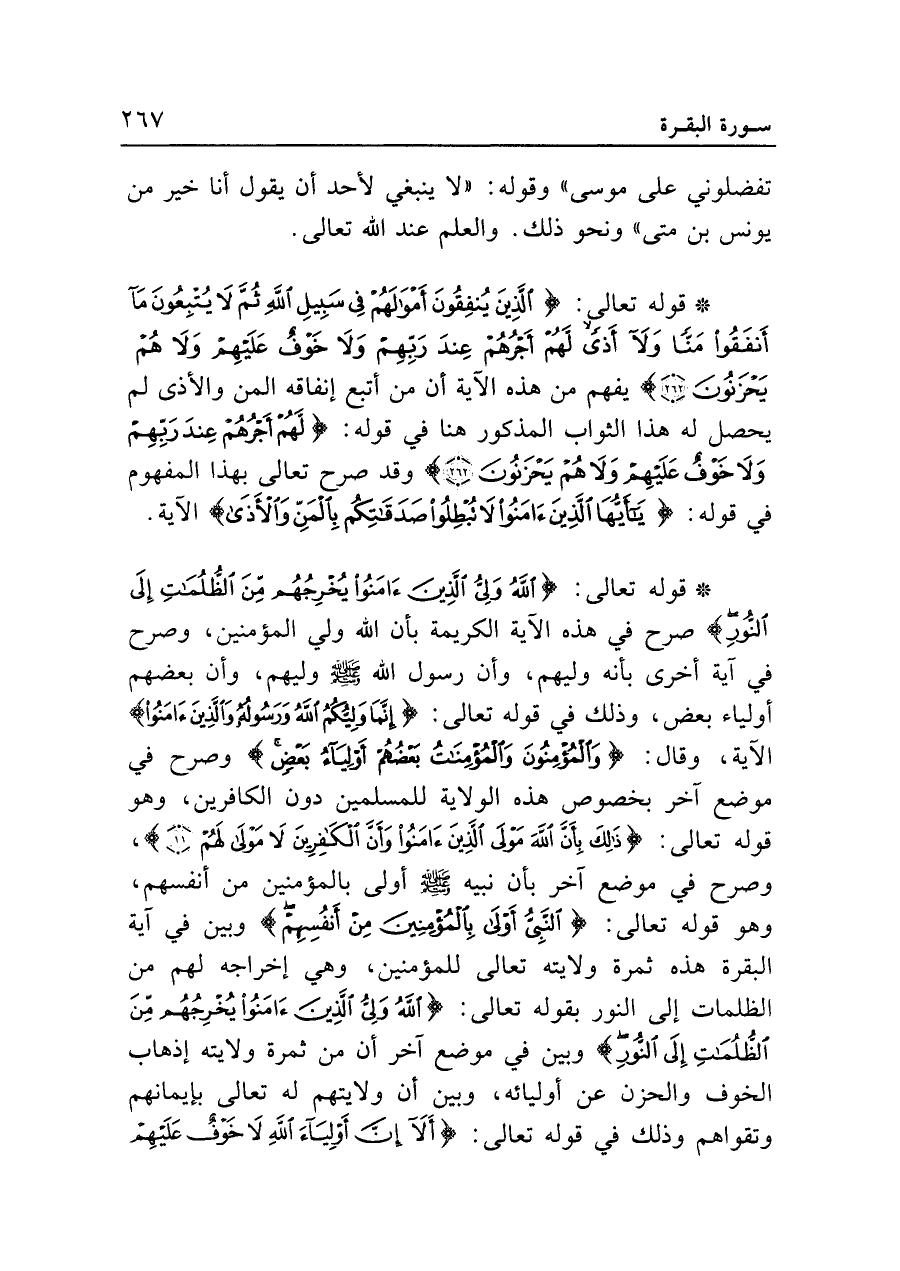 سورة البقرة ٢٦٧
تفضلوني على موسى» وقوله: «لا ينبغي لأحد أن يقول أنا خير من
يونس بن متى» ونحو ذلك. والعلم عند الله تعالى.
* قوله تعالى: ﴿ ٱلَّذِينَ يُنفِقُونَ أَمْوَٰلَهُمْ فِى سَبِيلِ ٱللَّهِ ثُمَّ لَا يُتْبِعُونَ مَآ
أَنفَقُوا۟ مَنًّا وَلَآ أَذًىۙ لَّهُمْ أَجْرُهُمْ عِندَ رَبِّهِمْ وَلَا خَوْفٌ عَلَيْهِمْ وَلَا هُمْ
يَحْزَنُونَ ٢٦٢﴾ يفهم من هذه الآية أن من أتبع إنفاقه المن والأذى لم
يحصل له هذا الثواب المذكور هنا في قوله: ﴿ لَّهُمْ أَجْرُهُمْ عِندَ رَبِّهِمْ
وَلَا خَوْفٌ عَلَيْهِمْ وَلَا هُمْ يَحْزَنُونَ ٢٦٢﴾ وقد صرح تعالى بهذا المفهوم
في قوله: ﴿ يَٰٓأَيُّهَا ٱلَّذِينَ ءَامَنُوا۟ لَا تُبْطِلُوا۟ صَدَقَٰتِكُم بِٱلْمَنِّ وَٱلْأَذَىٰ﴾ الآية.
* قوله تعالى: ﴿ ٱللَّهُ وَلِىُّ ٱلَّذِينَ ءَامَنُوا۟ يُخْرِجُهُم مِّنَ ٱلظُّلُمَٰتِ إِلَى
ٱلنُّورِۖ﴾ صرح في هذه الآية الكريمة بأن الله ولي المؤمنين، وصرح
في آية أخرى بأنه وليهم، وأن رسول الله ﷺ وليهم، وأن بعضهم
أولياء بعض، وذلك في قوله تعالى: ﴿ إِنَّمَا وَلِيُّكُمُ ٱللَّهُ وَرَسُولُهُۥ وَٱلَّذِينَ ءَامَنُوا۟﴾
الآية، وقال: ﴿ وَٱلْمُؤْمِنُونَ وَٱلْمُؤْمِنَٰتُ بَعْضُهُمْ أَوْلِيَآءُ بَعْضٍۚ ﴾ وصرح في
موضع آخر بخصوص هذه الولاية للمسلمين دون الكافرين، وهو
قوله تعالى: ﴿ ذَٰلِكَ بِأَنَّ ٱللَّهَ مَوْلَى ٱلَّذِينَ ءَامَنُوا۟ وَأَنَّ ٱلْكَٰفِرِينَ لَا مَوْلَىٰ لَهُمْ ١١﴾،
وصرح في موضع آخر بأن نبيه ﷺ أولى بالمؤمنين من أنفسهم،
وهو قوله تعالى: ﴿ ٱلنَّبِىُّ أَوْلَىٰ بِٱلْمُؤْمِنِينَ مِنْ أَنفُسِهِمْۖ ﴾ وبين في آية
البقرة هذه ثمرة ولايته تعالى للمؤمنين، وهي إخراجه لهم من
الظلمات إلى النور بقوله تعالى: ﴿ ٱللَّهُ وَلِىُّ ٱلَّذِينَ ءَامَنُوا۟ يُخْرِجُهُم مِّنَ
ٱلظُّلُمَٰتِ إِلَى ٱلنُّورِۖ﴾ وبين في موضع آخر أن من ثمرة ولايته إذهاب
الخوف والحزن عن أوليائه، وبين أن ولايتهم له تعالى بإيمانهم
وتقواهم وذلك في قوله تعالى: ﴿ أَلَآ إِنَّ أَوْلِيَآءَ ٱللَّهِ لَا خَوْفٌ عَلَيْهِمْ